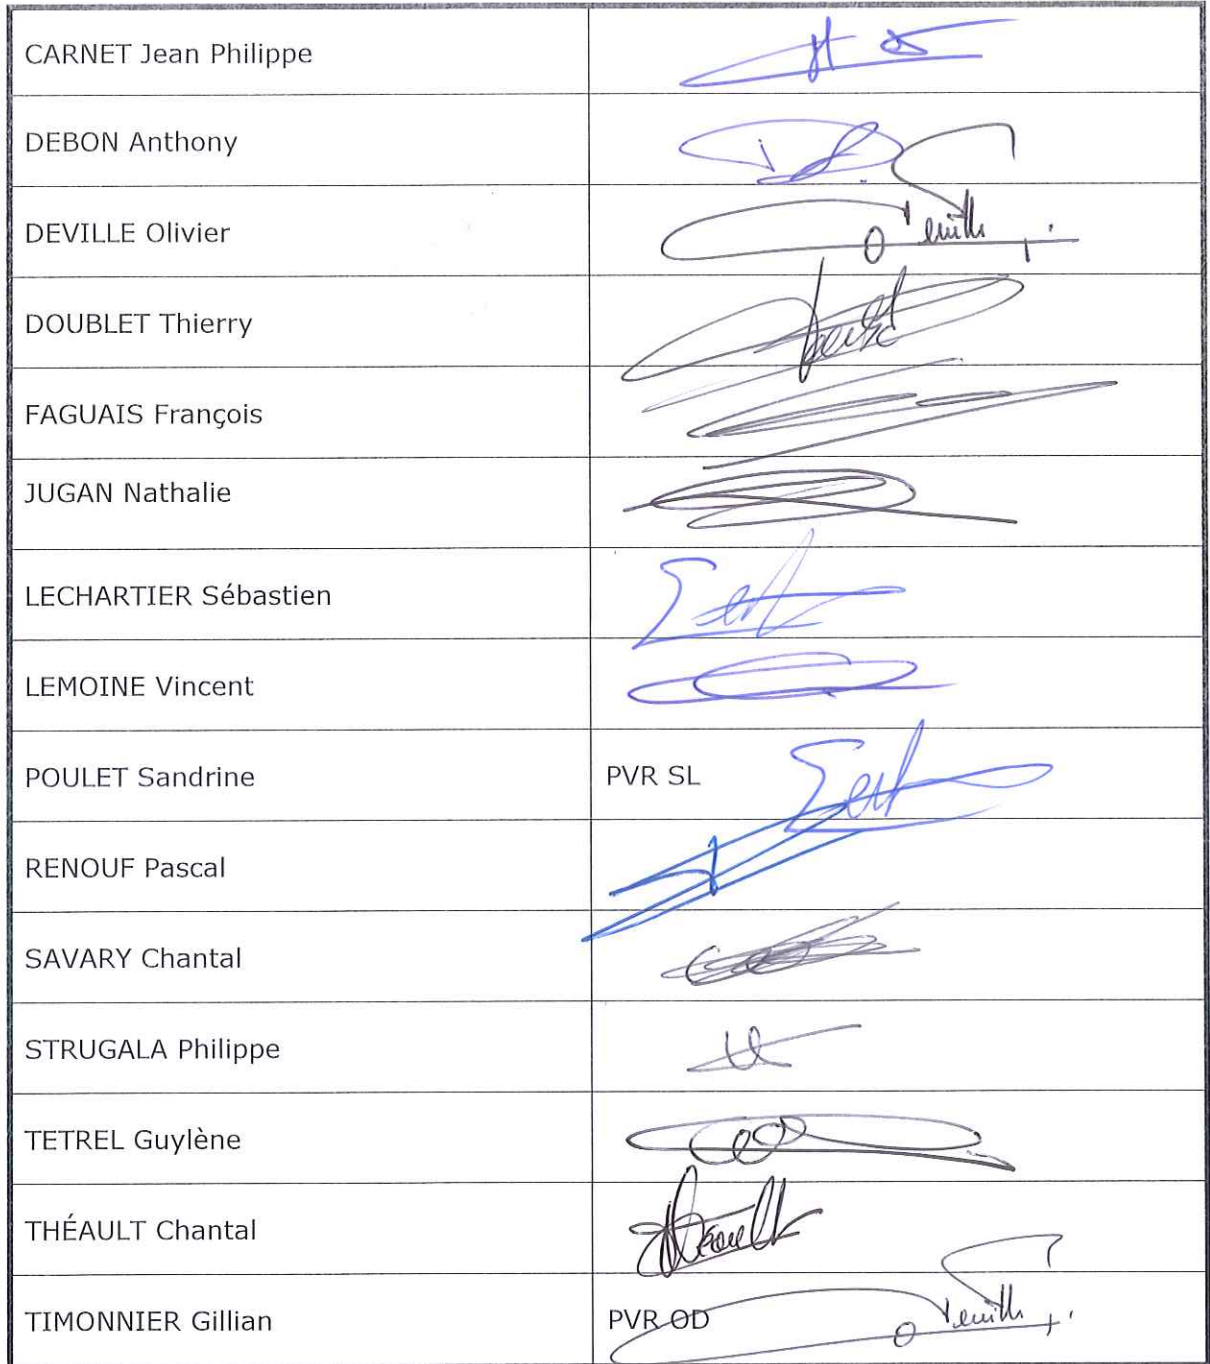 CARNET Jean Philippe
DEBON Anthony
DEVILLE Olivier
DOUBLET Thierry
FAGUAIS François
JUGAN Nathalie
LECHARTIER Sébastien
LEMOINE Vincent
POULET Sandrine PVR SL
RENOUF Pascal
SAVARY Chantal
STRUGALA Philippe
TETREL Guylène
THÉAULT Chantal
TIMONNIER Gillian PVR OD